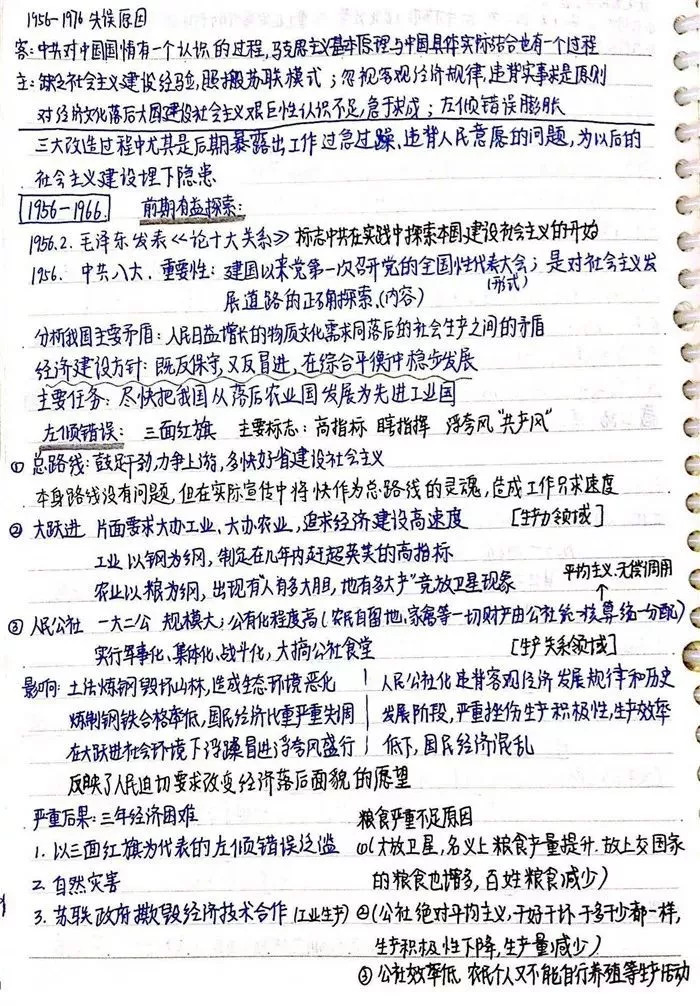 1956-1976 失误原因
答:中共对中国国情有一个认识的过程,马克思主义基本原理与中国具体实际结合也有一个过程
主:缺乏社会主义建设经验,照搬苏联模式;忽视客观经济规律,违背实事求是原则
对经济文化落后大国建设社会主义艰巨性认识不足,急于求成;左倾错误膨胀
三大改造过程中尤其是后期暴露出工作过急过躁、违背人民意愿的问题,为以后的
社会主义建设埋下隐患
1956-1966. 前期有益探索:
1956.2. 毛泽东发表《论十大关系》 标志中共在实践中探索本国建设社会主义的开始
1956. 中共八大. 重要性: 建国以来党第一次召开党的全国性代表大会; 是对社会主义发
(形式)
展道路的正确探索.(内容)
分析我国主要矛盾: 人民日益增长的物质文化需求同落后的社会生产之间的矛盾
经济建设方针: 既反保守,又反冒进,在综合平衡中稳步发展
主要任务: 尽快把我国从落后农业国发展为先进工业国
左倾错误: 三面红旗 主要标志: 高指标 瞎指挥 浮夸风 "共产风"
① 总路线: 鼓足干劲,力争上游,多快好省建设社会主义
本身路线没有问题,但在实际宣传中将快作为总路线的灵魂,造成工作只求速度
② 大跃进 片面要求大办工业、大办农业,追求经济建设高速度 [生产力领域]
工业以钢为纲,制定在几年内赶超英美的高指标
农业以粮为纲,出现有"人有多大胆,地有多大产"竞放卫星现象
平均主义.无偿调用
③ 人民公社 一大二公 规模大;公有化程度高(农民自留地,家禽等一切财产由公社统一核算统一分配)
实行军事化、集体化、战斗化,大搞公社食堂 [生产关系领域]
影响: 土法炼钢毁坏山林,造成生态环境恶化
炼制钢铁合格率低,国民经济比重严重失调
在大跃进社会环境下浮躁冒进浮夸风盛行
人民公社化违背客观经济发展规律和历史
发展阶段,严重挫伤生产积极性,生产效率
低下,国民经济混乱
反映了人民迫切要求改变经济落后面貌的愿望
严重后果:三年经济困难
1. 以三面红旗为代表的左倾错误泛滥
2. 自然灾害
3. 苏联政府撕毁经济技术合作(工业生产)
粮食严重不足原因
①(大放卫星,名义上粮食产量提升.故上交国家
的粮食也增多,百姓粮食减少)
②(公社绝对平均主义,干好干坏干多干少都一样,
生产积极性下降,生产量减少)
③ 公社效率低 农民个人又不能自行养殖等生产活动